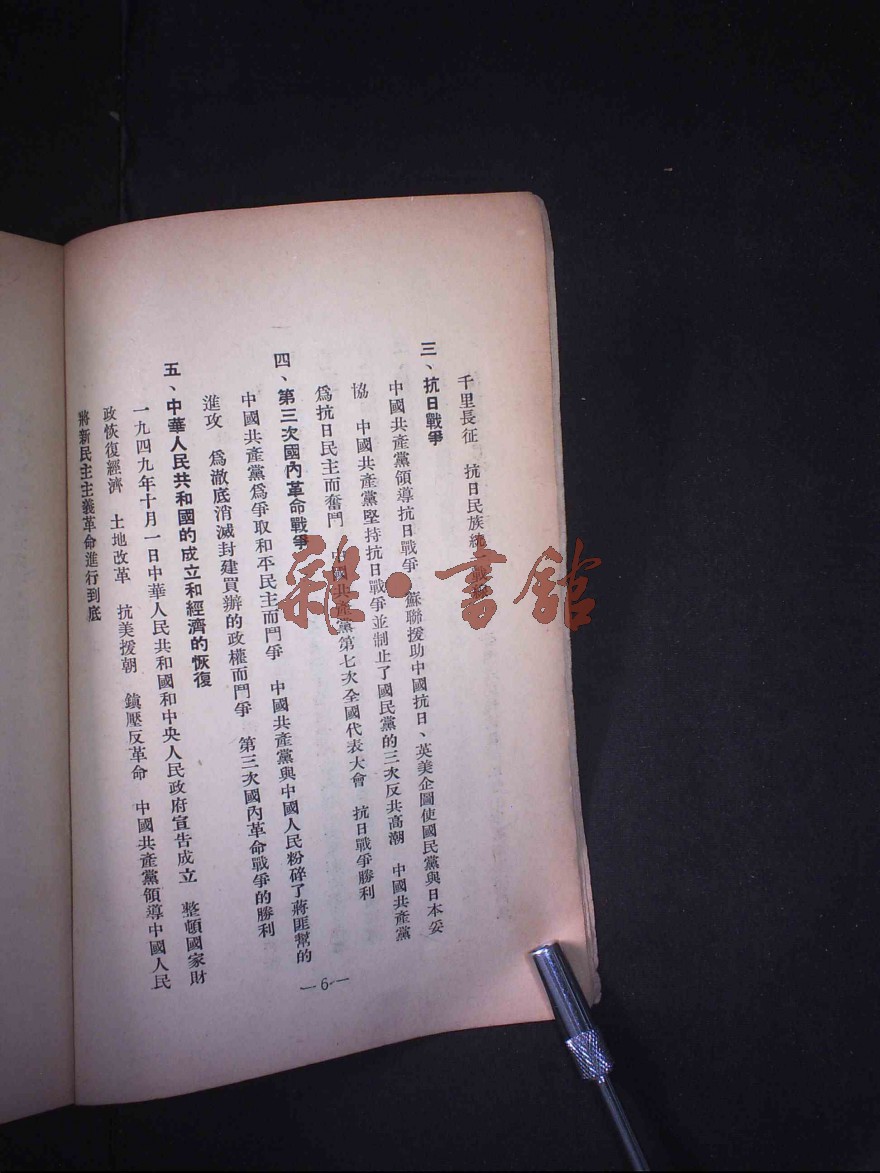 千里長征　抗日民族統一戰線
三、抗日戰爭
中國共產黨領導抗日戰爭　蘇聯援助中國抗日、英美企圖使國民黨與日本妥
協　中國共產黨堅持抗日戰爭並制止了國民黨的三次反共高潮　中國共產黨
爲抗日民主而奮鬥　中國共產黨第七次全國代表大會　抗日戰爭勝利
四、第三次國內革命戰爭
中國共產黨爲爭取和平民主而鬥爭　中國共產黨與中國人民粉碎了蔣匪幫的
進攻　爲澈底消滅封建買辦的政權而鬥爭　第三次國內革命戰爭的勝利
五、中華人民共和國的成立和經濟的恢復
一九四九年十月一日中華人民共和國和中央人民政府宣告成立　整頓國家財
政恢復經濟　土地改革　抗美援朝　鎮壓反革命　中國共產黨領導中國人民
將新民主主義革命進行到底
—6—
雜·書館